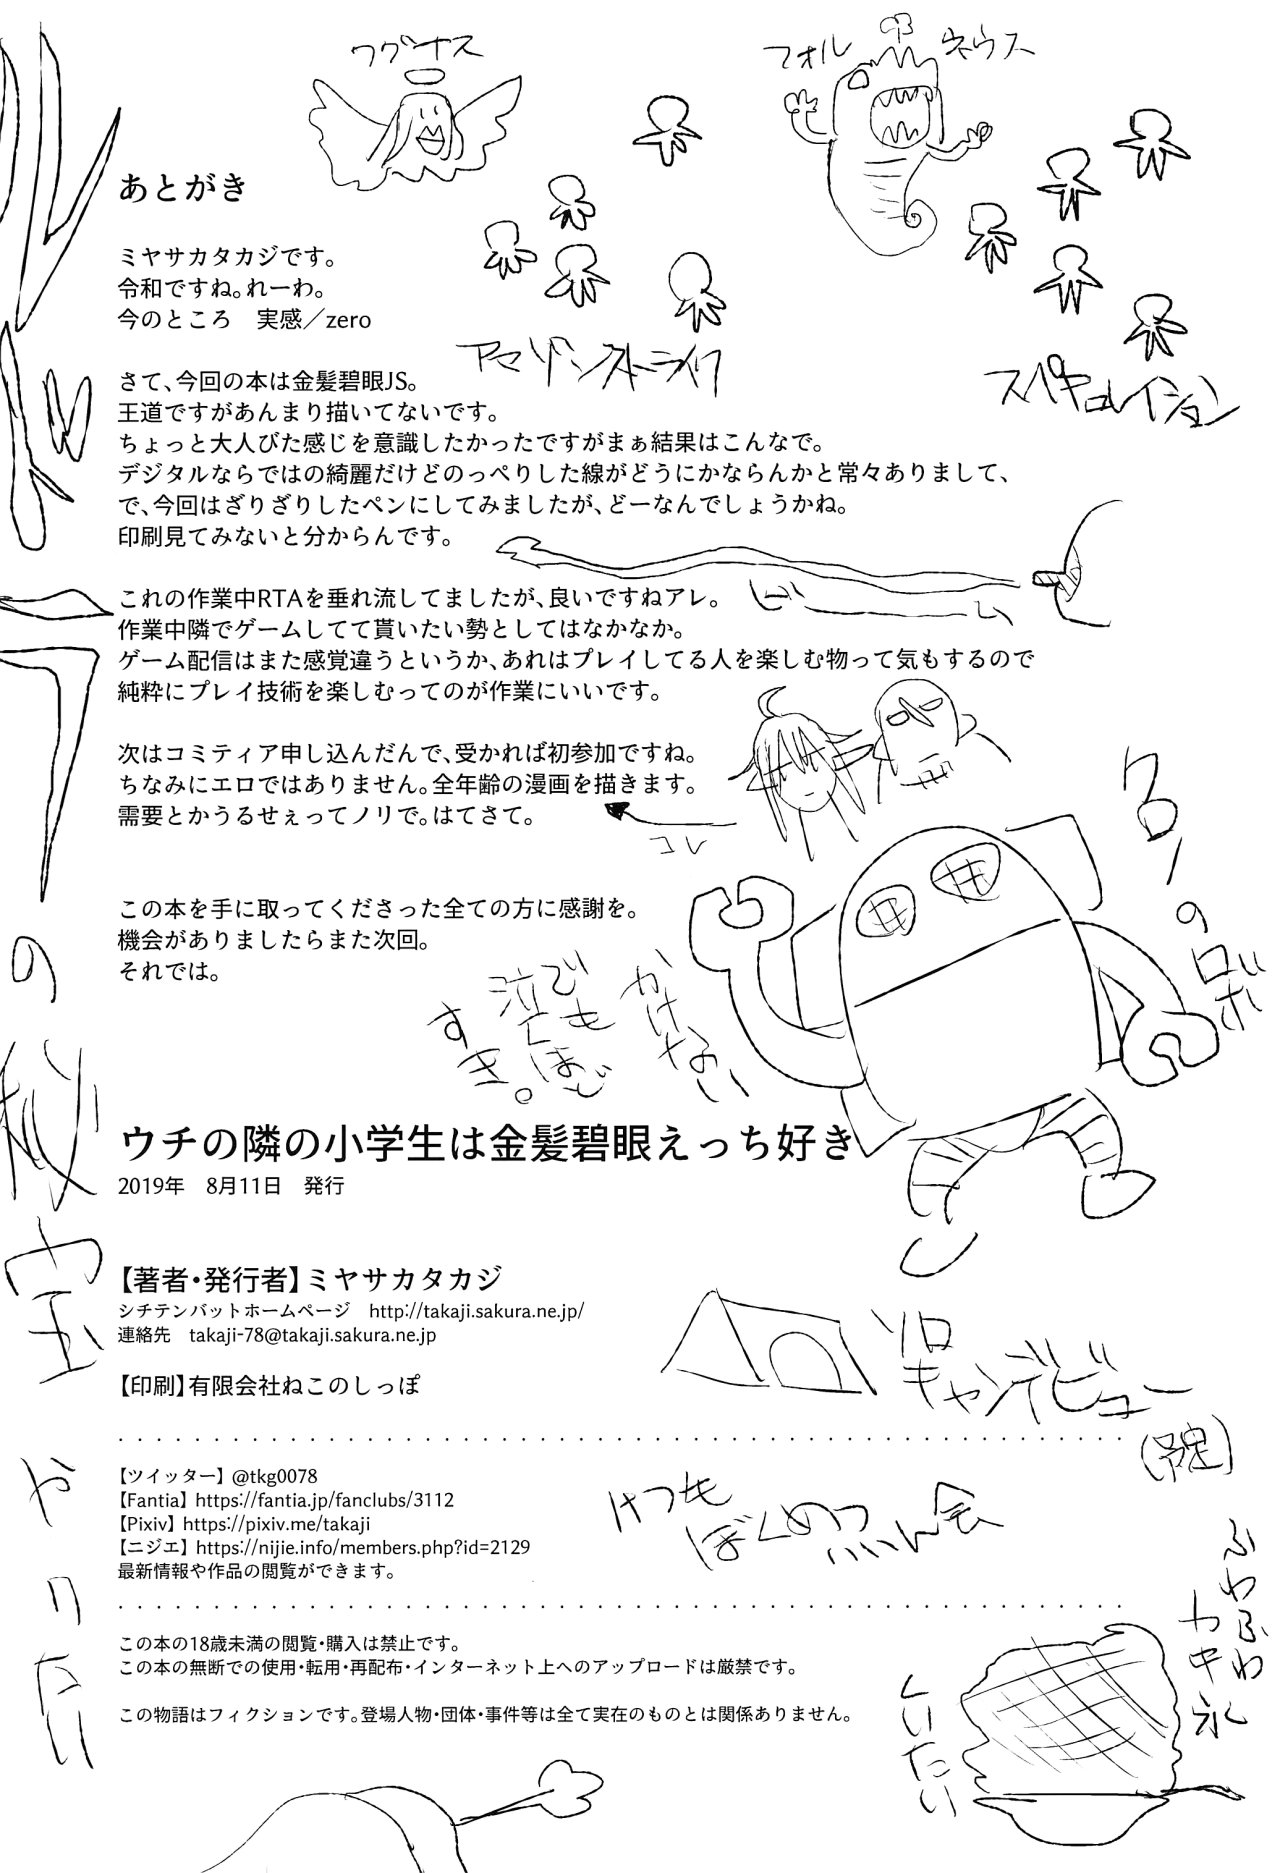 ワグナス
フォルネウス
あとがき
ミヤサカタカジです。
令和ですね。れーわ。
今のところ　実感／zero
アマゾンストライク
スペキュレイション
さて、今回の本は金髪碧眼JS。
王道ですがあんまり描いてないです。
ちょっと大人びた感じを意識したかったですがまぁ結果はこんなで。
デジタルならではの綺麗だけどのっぺりした線がどうにかならんかと常々ありまして、
で、今回はざりざりしたペンにしてみましたが、どーなんでしょうかね。
印刷見てみないと分からんです。
これの作業中RTAを垂れ流してましたが、良いですねアレ。
作業中隣でゲームしてて貰いたい勢としてはなかなか。
ゲーム配信はまた感覚違うというか、あれはプレイしてる人を楽しむ物って気もするので
純粋にプレイ技術を楽しむってのが作業にいいです。
次はコミティア申し込んだんで、受かれば初参加ですね。
ちなみにエロではありません。全年齢の漫画を描きます。
需要とかうるせぇってノリで。はてさて。
コレ
この本を手に取ってくださった全ての方に感謝を。
機会がありましたらまた次回。
それでは。
かけない
でも
泣くほど
すき。
ウチの隣の小学生は金髪碧眼えっち好き
2019年　8月11日　発行
【著者・発行者】ミヤサカタカジ
シチテンバットホームページ　http://takaji.sakura.ne.jp/
連絡先　takaji-78@takaji.sakura.ne.jp
【印刷】有限会社ねこのしっぽ
ソロ
キャンデビュー
(予定)
【ツイッター】@tkg0078
【Fantia】https://fantia.jp/fanclubs/3112
【Pixiv】https://pixiv.me/takaji
【ニジエ】https://nijie.info/members.php?id=2129
最新情報や作品の閲覧ができます。
この本の18歳未満の閲覧・購入は禁止です。
この本の無断での使用・転用・再配布・インターネット上へのアップロードは厳禁です。
この物語はフィクションです。登場人物・団体・事件等は全て実在のものとは関係ありません。
ふわふわ
カキ氷
くいたい
の秘宝やりたい